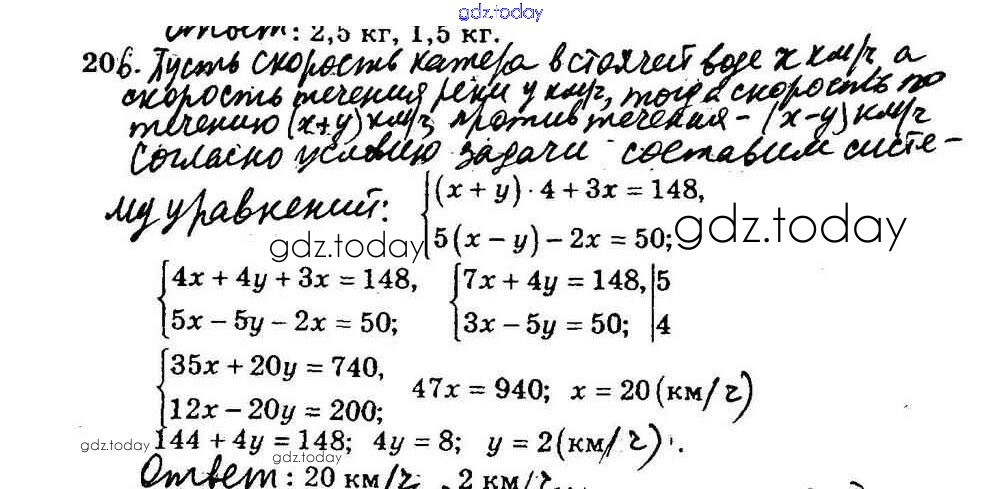 gdz.today
Ответ: 2,5 кг, 1,5 кг.
206. Пусть скорость катера в стоячей воде x км/ч, а
скорость течения реки y км/ч, тогда скорость по
течению (x+y) км/ч, против течения – (x–y) км/ч
Согласно условию задачи составим систе-
му уравнений: {(x + y) · 4 + 3x = 148,
5(x – y) – 2x = 50;
gdz.today
gdz.today
{4x + 4y + 3x = 148, {7x + 4y = 148, |5
5x – 5y – 2x = 50; 3x – 5y = 50; |4
{35x + 20y = 740,
12x – 20y = 200; 47x = 940; x = 20 (км/ч)
gdz.today
144 + 4y = 148; 4y = 8; y = 2 (км/ч).
gdz.today
Ответ: 20 км/ч, 2 км/ч.